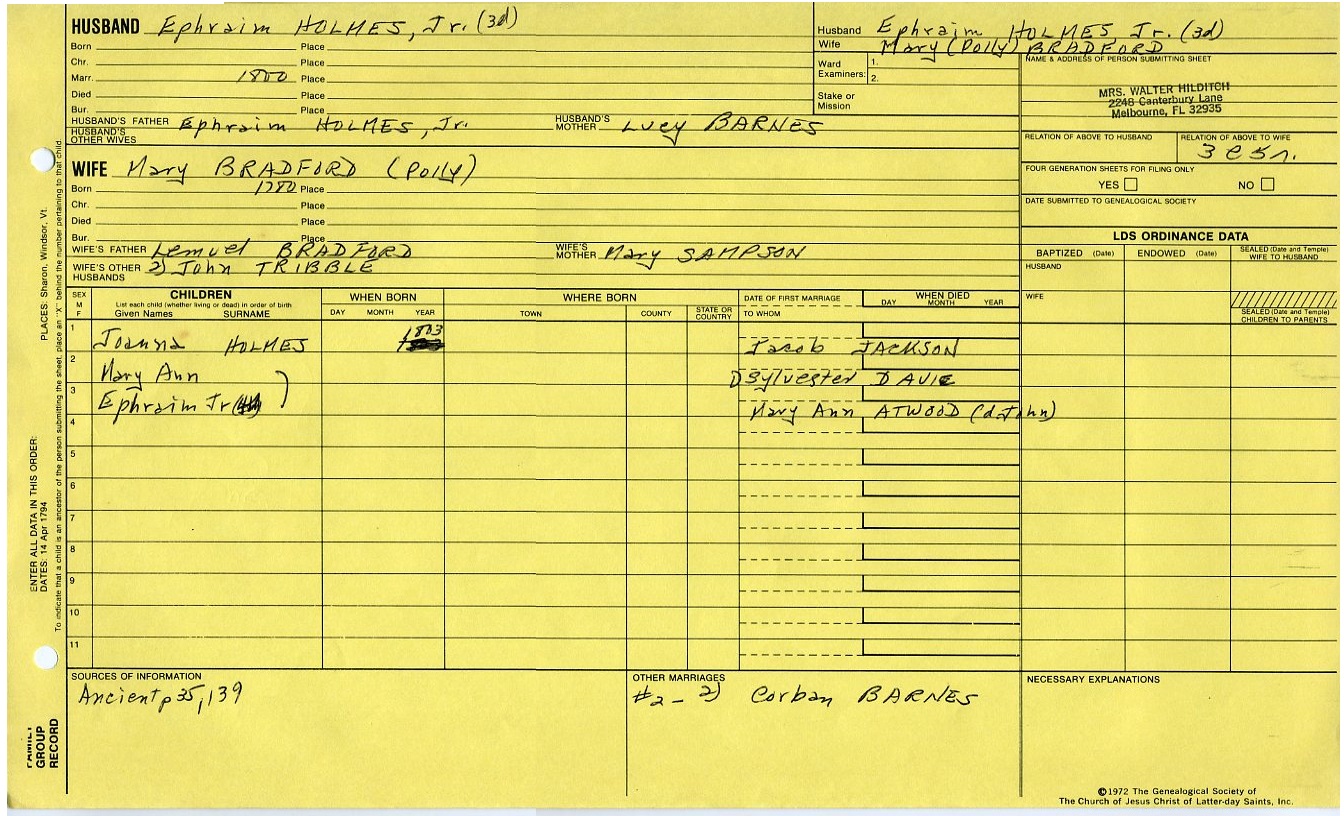 HUSBAND Ephraim HOLMES, Jr. (3d)
Born Place
Chr. Place
Marr. 1800 Place
Died Place
Bur. Place
HUSBAND'S FATHER Ephraim HOLMES, Jr. HUSBAND'S MOTHER Lucy BARNES
HUSBAND'S OTHER WIVES
Husband Ephraim HOLMES, Jr. (3d)
Wife Mary (Polly) BRADFORD
Ward Examiners: 1.
2.
Stake or Mission
NAME & ADDRESS OF PERSON SUBMITTING SHEET
MRS. WALTER HILDITCH
2248 Canterbury Lane
Melbourne, FL 32935
RELATION OF ABOVE TO HUSBAND RELATION OF ABOVE TO WIFE
3c5r.
FOUR GENERATION SHEETS FOR FILING ONLY
YES NO
DATE SUBMITTED TO GENEALOGICAL SOCIETY
WIFE Mary BRADFORD (Polly)
Born 1780 Place
Chr. Place
Died Place
Bur. Place
WIFE'S FATHER Lemuel BRADFORD WIFE'S MOTHER Mary SAMPSON
WIFE'S OTHER HUSBANDS 2) John TRIBBLE
LDS ORDINANCE DATA
BAPTIZED (Date) ENDOWED (Date) SEALED (Date and Temple) WIFE TO HUSBAND
HUSBAND
WIFE
SEALED (Date and Temple) CHILDREN TO PARENTS
SEX M F CHILDREN WHEN BORN WHERE BORN DATE OF FIRST MARRIAGE WHEN DIED
List each child (whether living or dead) in order of birth
Given Names SURNAME DAY MONTH YEAR TOWN COUNTY STATE OR COUNTRY TO WHOM DAY MONTH YEAR
1 Joanna HOLMES 1803 Jacob JACKSON
2 Mary Ann Sylvester DAVIE
3 Ephraim Jr Mary Ann ATWOOD (d John)
4
5
6
7
8
9
10
11
SOURCES OF INFORMATION
Ancient p 35, 139
OTHER MARRIAGES
#2 - 2) Corban BARNES
NECESSARY EXPLANATIONS
©1972 The Genealogical Society of
The Church of Jesus Christ of Latter-day Saints, Inc.
FAMILY GROUP RECORD
ENTER ALL DATA IN THIS ORDER:
DATES: 14 Apr 1794
PLACES: Sharon, Windsor, Vt.
To indicate that a child is an ancestor of the person submitting the sheet, place an "X" behind the number pertaining to that child.